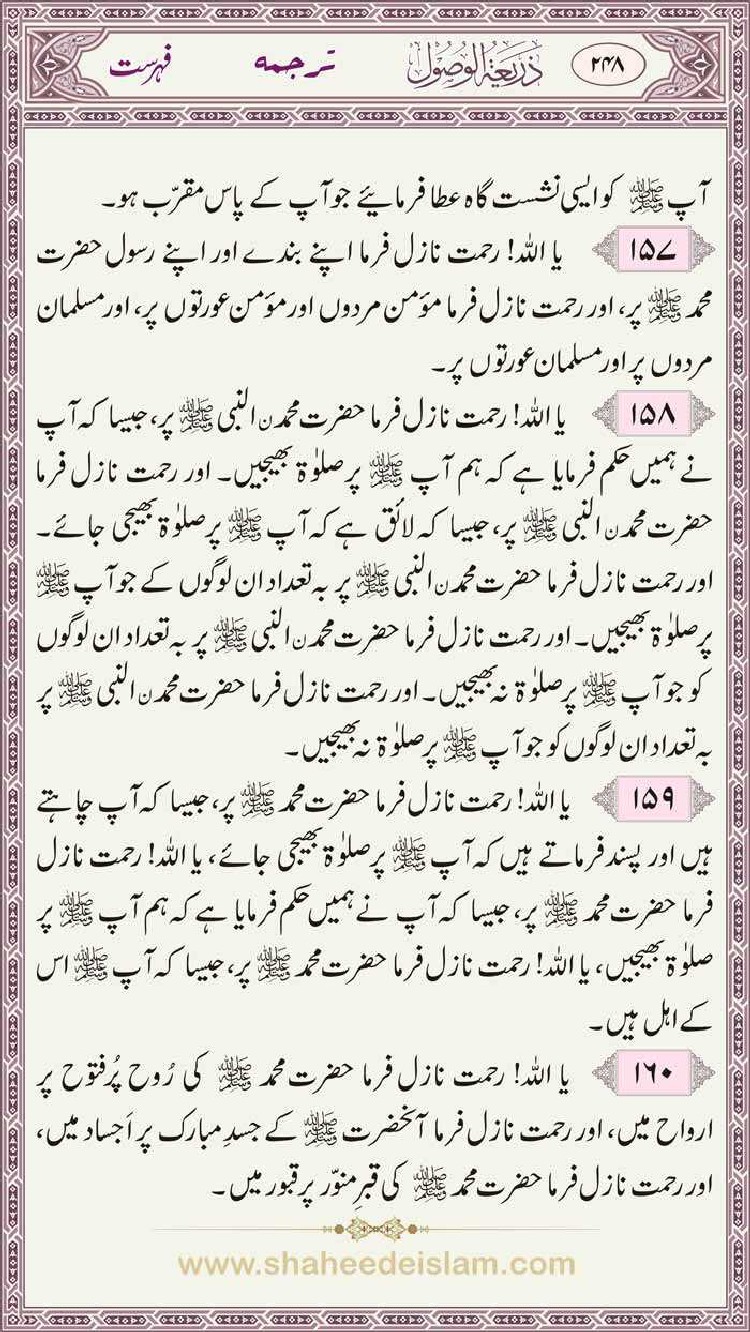 ۲۴۸ ذریعۃ الوصول ترجمہ فہرست
آپ ﷺ کو ایسی نشست گاہ عطا فرمایئے جو آپ کے پاس مقرّب ہو۔
۱۵۷ یا اللہ! رحمت نازل فرما اپنے بندے اور اپنے رسول حضرت
محمد ﷺ پر، اور رحمت نازل فرما مؤمن مردوں اور مؤمن عورتوں پر، اور مسلمان
مردوں پر اور مسلمان عورتوں پر۔
۱۵۸ یا اللہ! رحمت نازل فرما حضرت محمد ن النبی ﷺ پر، جیسا کہ آپ
نے ہمیں حکم فرمایا ہے کہ ہم آپ ﷺ پر صلوٰۃ بھیجیں۔ اور رحمت نازل فرما
حضرت محمد ن النبی ﷺ پر، جیسا کہ لائق ہے کہ آپ ﷺ پر صلوٰۃ بھیجی جائے۔
اور رحمت نازل فرما حضرت محمد ن النبی ﷺ پر بہ تعداد ان لوگوں کے جو آپ ﷺ
پر صلوٰۃ بھیجیں۔ اور رحمت نازل فرما حضرت محمد ن النبی ﷺ پر بہ تعداد ان لوگوں
کو جو آپ ﷺ پر صلوٰۃ نہ بھیجیں۔ اور رحمت نازل فرما حضرت محمد ن النبی ﷺ پر
بہ تعداد ان لوگوں کو جو آپ ﷺ پر صلوٰۃ نہ بھیجیں۔
۱۵۹ یا اللہ! رحمت نازل فرما حضرت محمد ﷺ پر، جیسا کہ آپ چاہتے
ہیں اور پسند فرماتے ہیں کہ آپ ﷺ پر صلوٰۃ بھیجی جائے، یا اللہ! رحمت نازل
فرما حضرت محمد ﷺ پر، جیسا کہ آپ نے ہمیں حکم فرمایا ہے کہ ہم آپ ﷺ پر
صلوٰۃ بھیجیں، یا اللہ! رحمت نازل فرما حضرت محمد ﷺ پر، جیسا کہ آپ ﷺ اس
کے اہل ہیں۔
۱۶۰ یا اللہ! رحمت نازل فرما حضرت محمد ﷺ کی رُوح پُرفتوح پر
ارواح میں، اور رحمت نازل فرما آنحضرت ﷺ کے جسدِ مبارک پر اَجساد میں،
اور رحمت نازل فرما حضرت محمد ﷺ کی قبرِ منوّر پر قبور میں۔
www.shaheedeislam.com